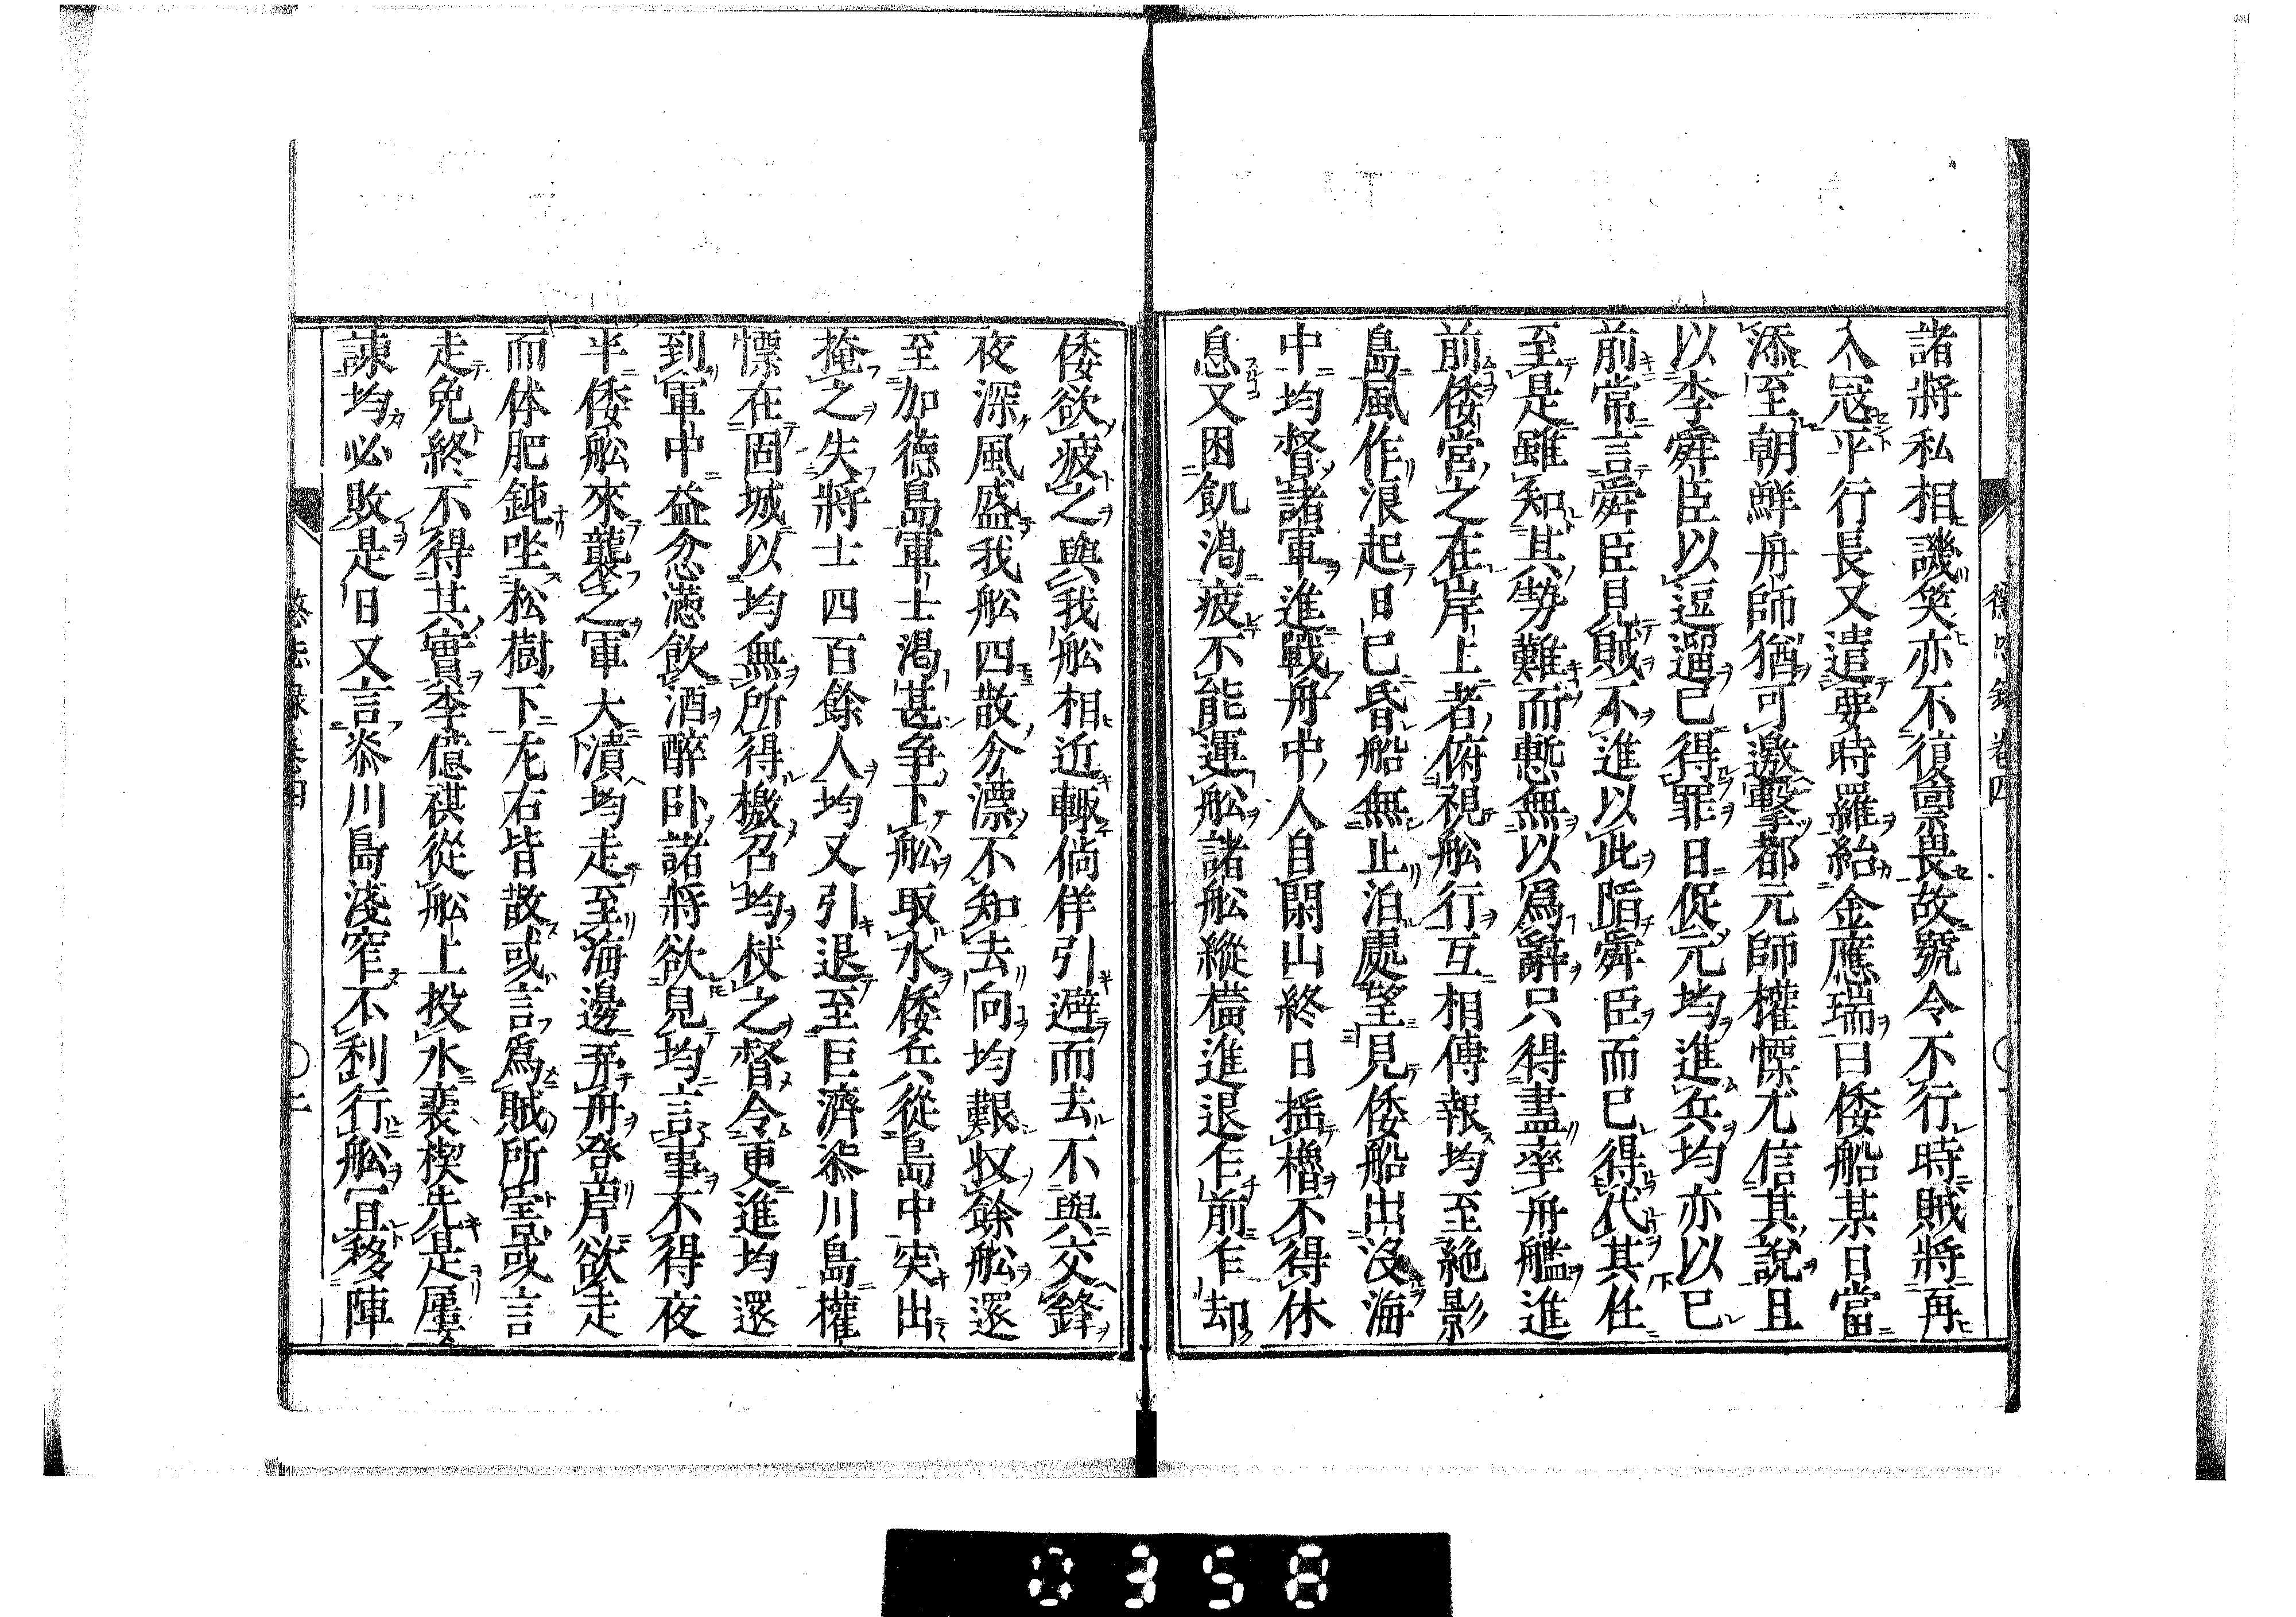 諸將私相譏笑亦不復稟畏故號令不行時賊將再
入寇平行長又遣要時羅紿金應瑞曰倭船某日當
添至朝鮮舟師猶可邀擊都元師權慄尤信其說且
以李舜臣以逗遛已得罪日促元均進兵均亦以己
前常言舜臣見賊不進以此陷舜臣而已得代其任
至是雖知其勢難而慙無以爲辭只得盡率舟艦進
前倭營之在岸上者俯視舩行互相傳報均至絶影
島風作浪起日已昏船無止泊處望見倭船出沒海
中均督諸軍進戰舟中人自閑山終日搖櫓不得休
息又困飢渴疲不能運舩諸舩縱橫進退乍前乍却
倭欲疲之與我舩相近輙倘佯引避而去不與交鋒
夜深風盛我舩四散分漂不知去向均艱収餘舩還
至加德島軍士渴甚争下舩取水倭兵從島中突出
掩之失將士四百餘人均又引退至巨濟柒川島權
慄在固城以均無所得檄召均杖之督令更進均還
到軍中益忿懣飲酒醉卧諸將欲見均言事不得夜
半倭舩來襲之軍大潰均走至海邊弃舟登岸欲走
而体肥鈍坐松樹下左右皆散或言爲賊所害或言
走免終不得其實李億祺從舩上投水裵楔先是屢
諫均必敗是日又言柒川島淺窄不利行舩宜移陣
懲毖錄 卷四